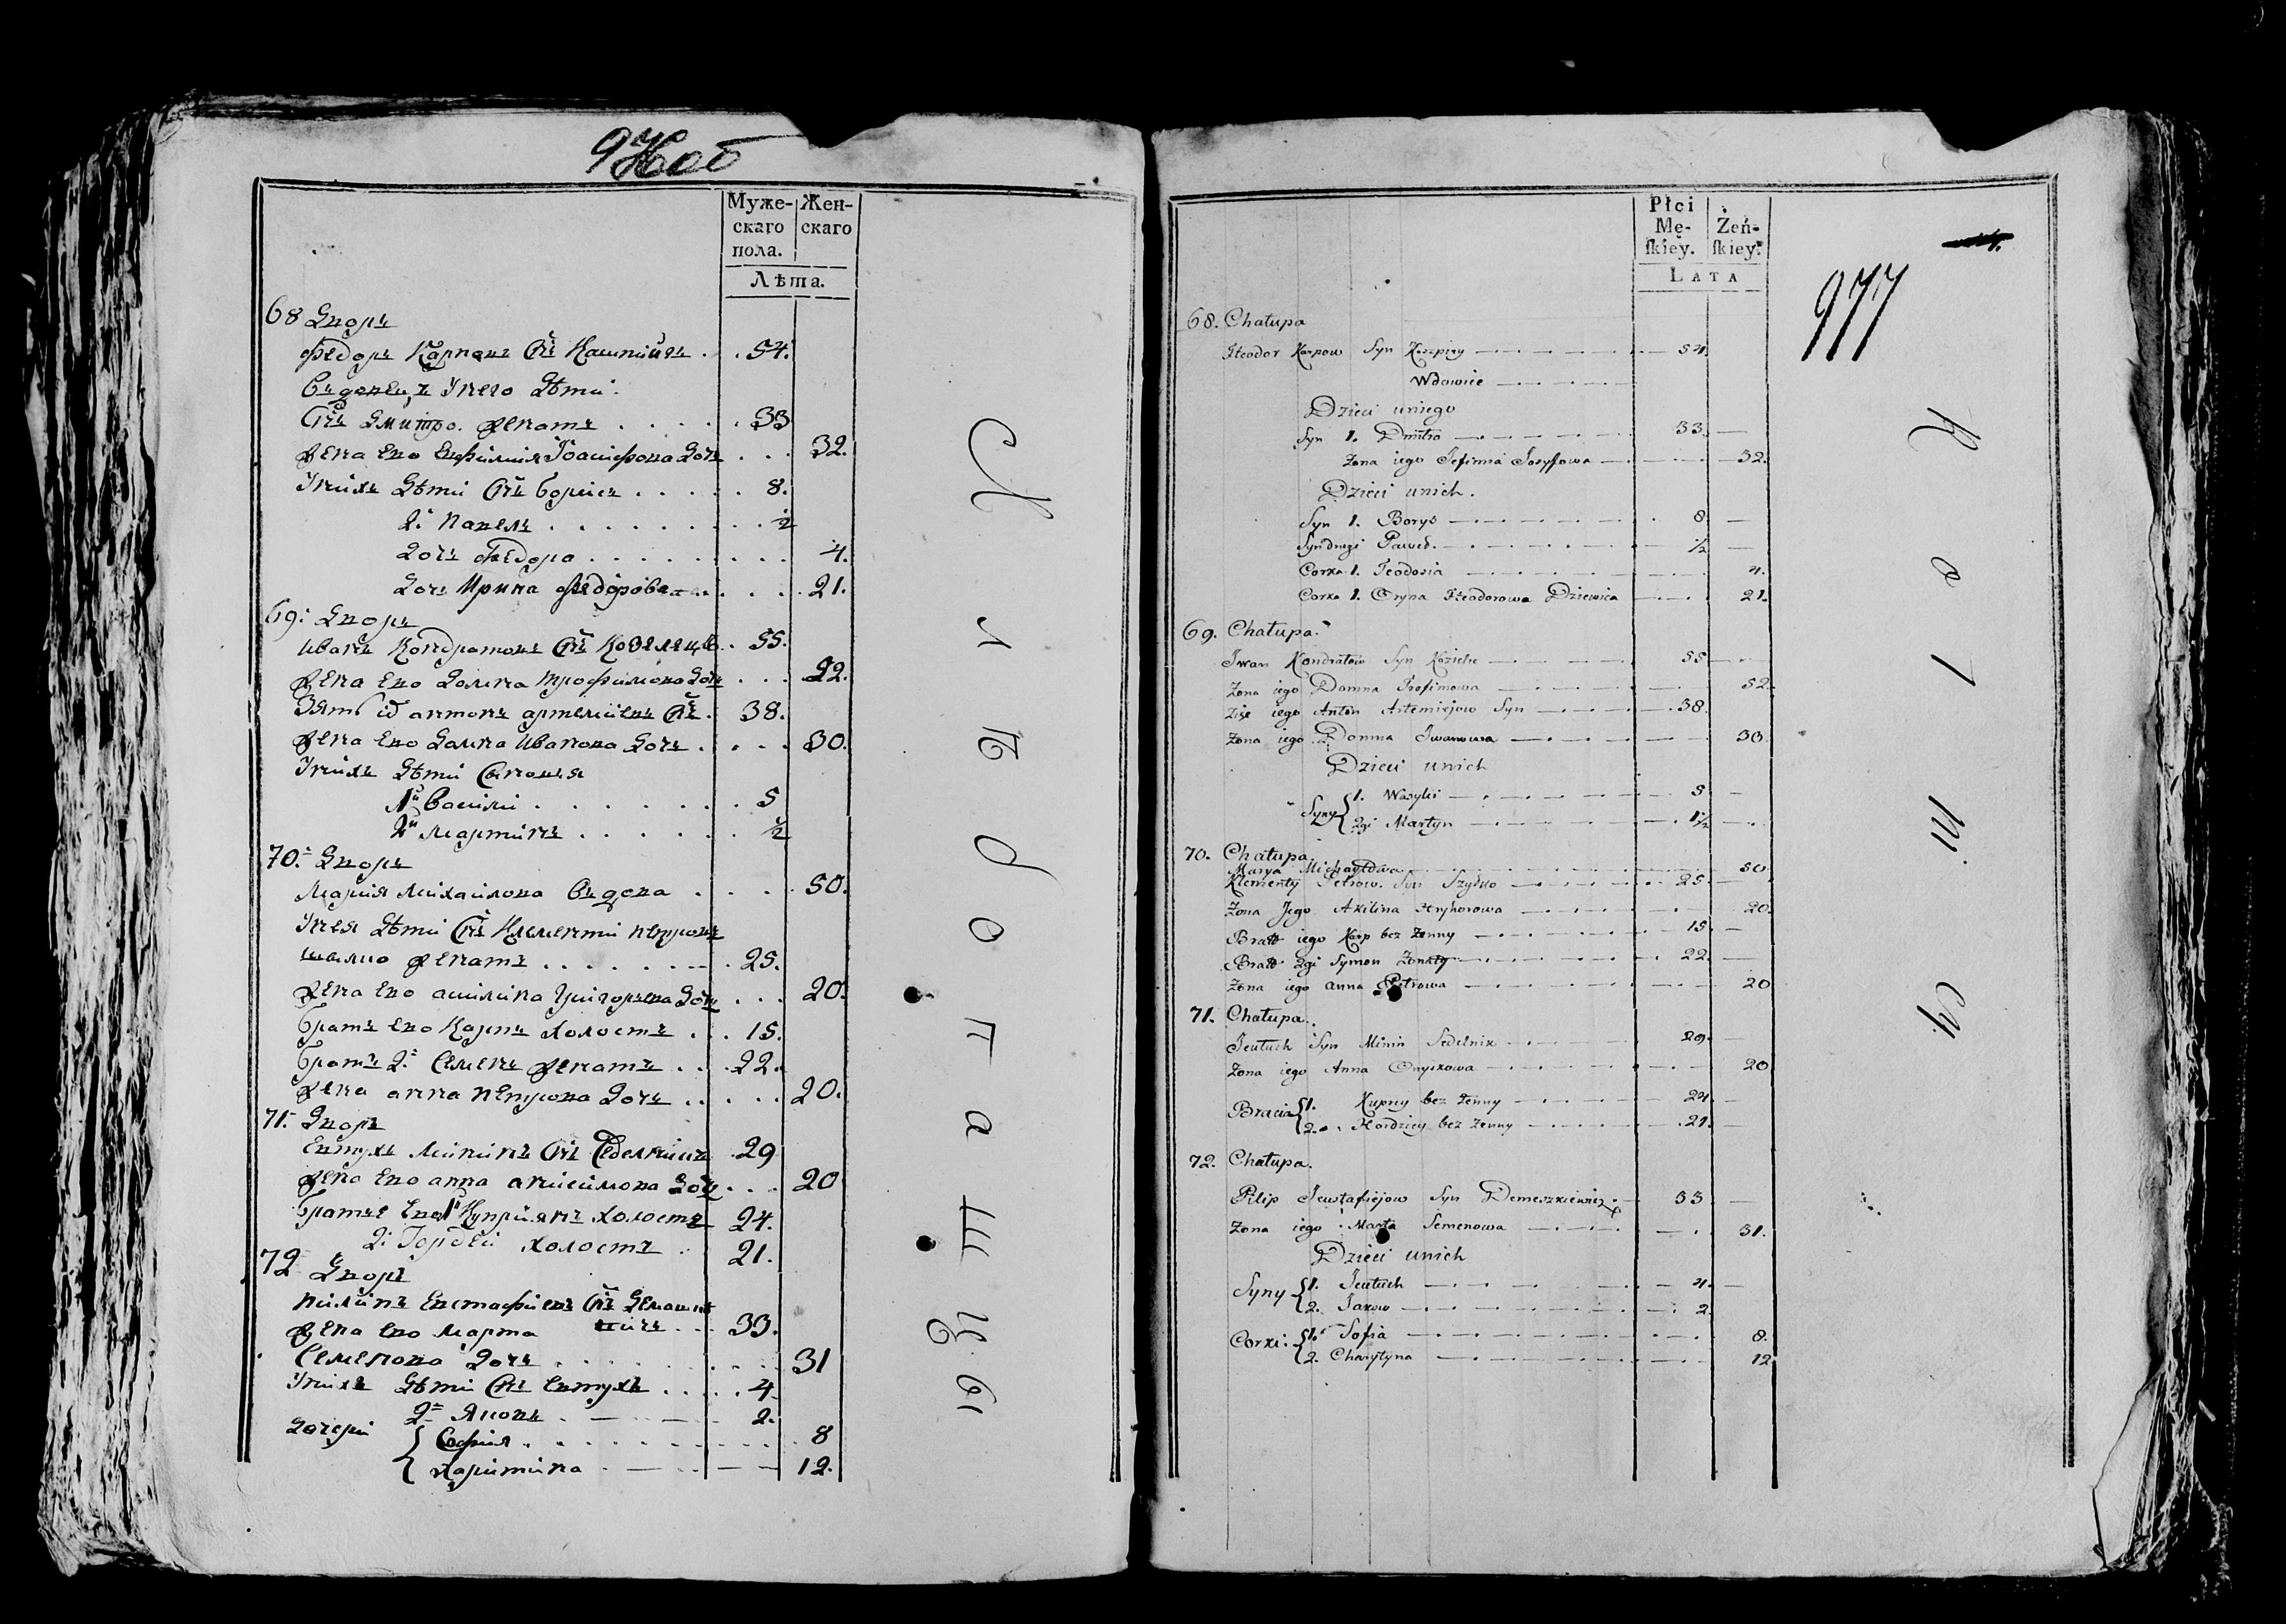 976 об
Муже-
скаго
пола.
Жен-
скаго
Лѣта.
68 Дворъ
Федоръ Карповъ Снъ Кашпѣй . . 54.
Вдовец, У него Дѣти
Снъ Дмитро. женатъ . . . . . 33
жена Ево Евфимия Іоасифова Дочь . . . 32.
У нихъ Дѣти Снъ Борисъ . . . . . 8.
2й Павелъ . . . . . . . . ½
Дочь Федора . . . . . . . . 4.
Дочь Ирина Федорова . . . . 21.
69: Дворъ
Иванъ Кондратовъ Снъ . . 55.
жена Ево Домна Трофимова Дочь . . . 52.
Зять его антонъ артемиевъ Снъ . 38.
жена Ево Домна Иванова Дочь . . . . 30.
У нихъ Дѣти Сыновья
1й Василий . . . . . . . 5
2й Мартинъ . . . . . . ½
70. Дворъ
Мария Михайлова Вдова . . . . 50.
У нея Дѣти Снъ Климентий петровъ
женатъ . . . . . . 25.
жена Ево акилина Григорьева Дочь . . . 20.
Братъ Ево Карпъ холостъ . . . 15.
Братъ 2й Семенъ женатъ . . . 22.
жена анна петрова Дочь . . . . . 20.
71. Дворъ
Евтухъ Мининъ Снъ Седелникъ 29
жена Ево анна анисимова Дочь . . . 20
Братье Ево 1й Куприянъ холостъ 24.
2й Гордей холостъ . . 21.
72 Дворъ
пилипъ Евстафиевъ Снъ Демешке
вичъ . . . 33.
жена Ево Марта
Семенова Дочь . . . . . . . 31
У нихъ Дѣти Снъ Евтухъ . . . . . 4
2й Яковъ . — — 2.
Дочери { София . . . . . . . . 8
Харитина . — — — 12.
Хлѣбопашцы
Płci
Mę-
ſkiey.
Żeń-
ſkiey.
LATA
977
68. Chałupa
Fteodor Karpow Syn Kaszpiey 54
Wdowiec
Dzieci uniego
Syn 1. Dmitro 33.
Zona iego Jefimia Josyfowa 32.
Dzieci unich.
Syn 1. Borys 8
Syn drugi Paweł. ½
Corka 1. Teodosia 4.
Corka 1. Oryna Fteodorowa Dziewica 21.
69. Chałupa.
Iwan Kondratow Syn 55
Zona iego Domna Trofimowa 52.
Zięc iego Anton Artemiejow Syn 38.
Zona iego Domna Iwanowa 30
Dzieci unich
Syny { 1. Wasyli 5
2gi Martyn 1½
70. Chałupa.
Marya Michayłowa 50
Klementy Petrow. Syn Szyłko 25
Zona Jego Akilina Hryhorowa 20.
Bratt iego Karp bez Zenny 15.
Bratt 2gi Symon Zonaty 22.
Zona iego anna Petrowa 20
71. Chałupa.
Jeutuch Syn Minin Sedelnik 29
Zona iego Anna Onyskowa 20
Bracia { 1. Kuprey bez Zenny 24
2. Hordziey bez Zenny 21.
72. Chałupa.
Pilip Jeustafiejow Syn Demeszkiewicz 33
Zona iego Marta Semenowa 31.
Dzieci unich
Syny { 1. Jeutuch 4.
2. Jakow 2
Corki: { 1. Sofia 8.
2. Charytyna 12
Rolnicy.